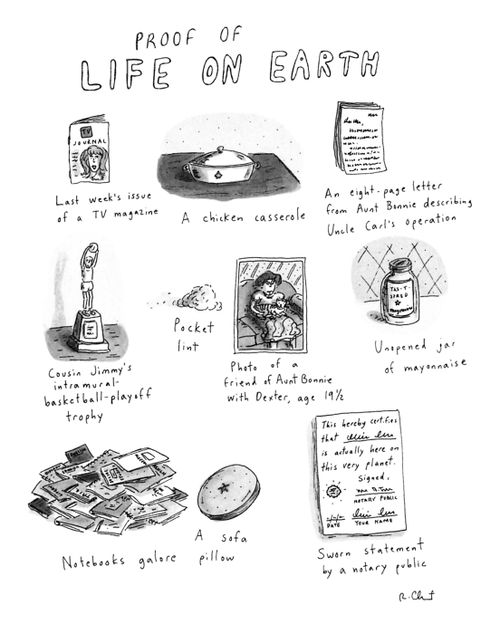 PROOF OF
LIFE ON EARTH
TV
JOURNAL
Last week's issue
of a TV magazine
A chicken casserole
An eight-page letter
from Aunt Bonnie describing
Uncle Carl's operation
Cousin Jimmy's
intramural-
basketball-playoff
trophy
Pocket
lint
Photo of a
friend of Aunt Bonnie
with Dexter, age 19½
TAS-T
SPRED
Unopened jar
of mayonnaise
Notebooks galore
A sofa
pillow
This hereby certifies
that
is actually here on
this very planet.
Signed,
NOTARY PUBLIC
DATE YOUR NAME
Sworn statement
by a notary public
R. Chast